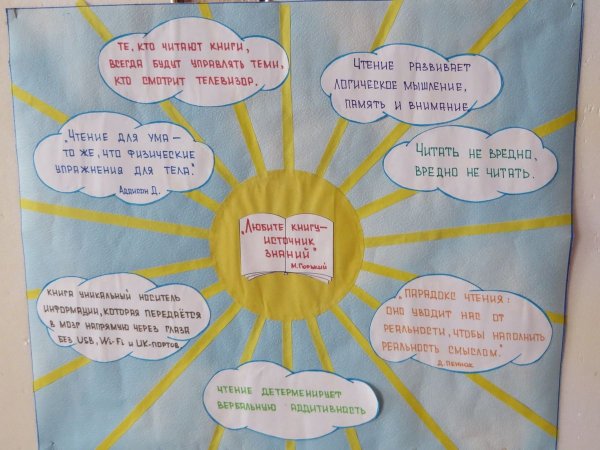 Те, кто читают книги,
всегда будут управлять теми,
кто смотрит телевизор.
Чтение развивает
логическое мышление,
память и внимание
„Чтение для ума —
то же, что физические
упражнения для тела."
Аддисон Д.
Читать не вредно,
вредно не читать.
„Любите книгу —
источник
знаний"
М. Горький
Книга уникальный носитель
информации, которая передаётся
в мозг напрямую через глаза
без USB, Wi-Fi и UK-портов
„Парадокс чтения:
оно уводит нас от
реальности, чтобы наполнить
реальность смыслом."
Д. Пеннак
Чтение детерменирует
вербальную аддитивность